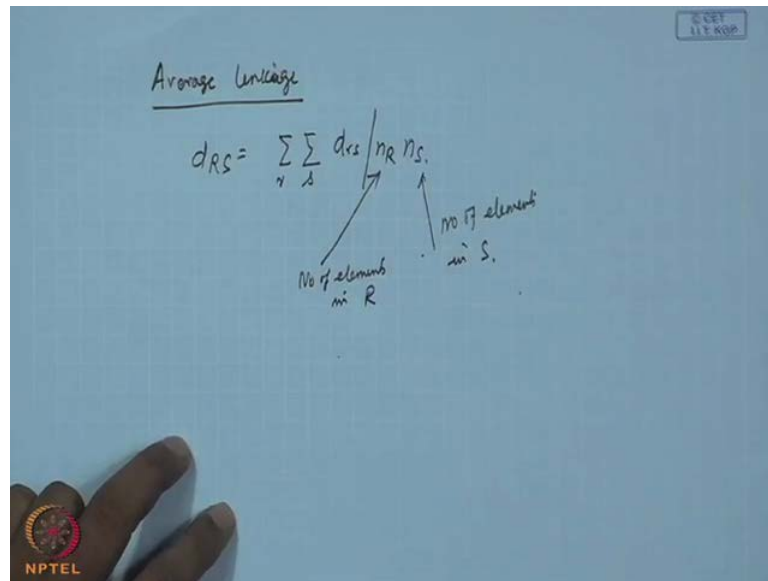 © CET
I.I.T. KGP
Average Linkage
dRS = Σ Σ drs / nR nS.
r s
No of elements
in S.
No of elements
in R
NPTEL